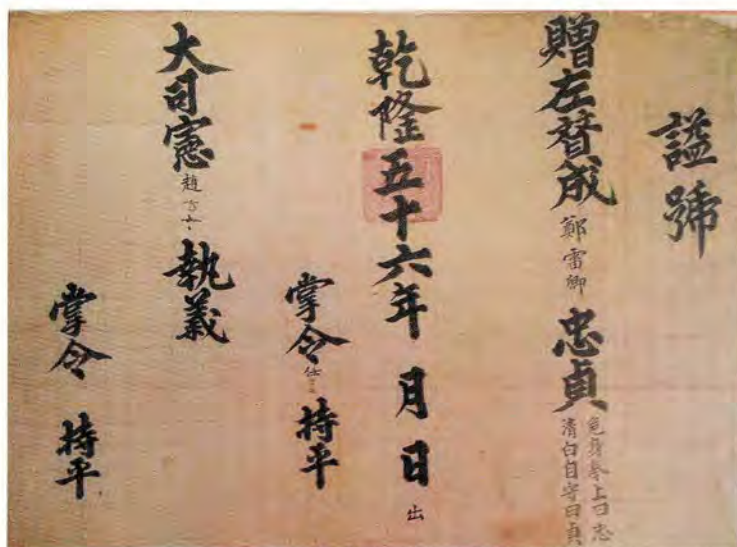 諡號
贈左贊成鄭雷卿 忠貞 危身奉上曰忠
清白自守曰貞
乾隆五十六年 月 日 出
掌令 持平
大司憲趙 執義
掌令 持平